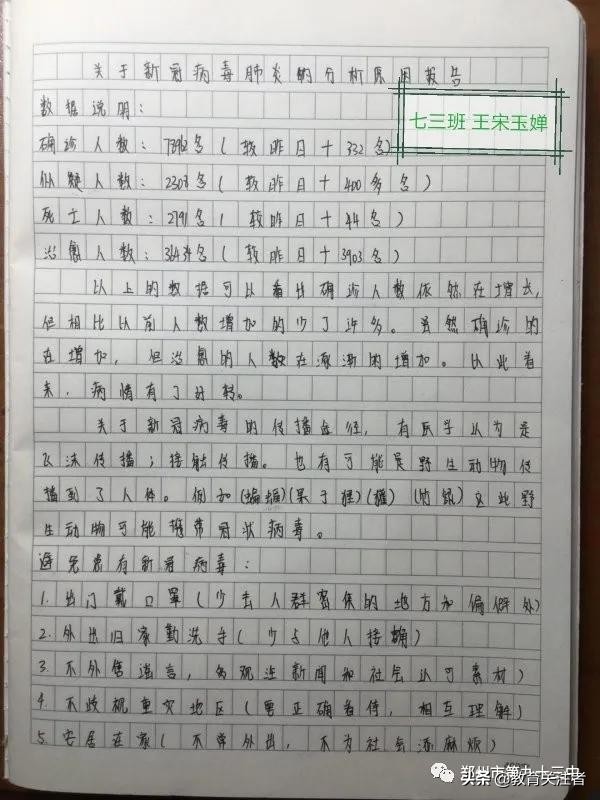 关于新冠病毒肺炎的分析原因报告
七三班 王宋玉婵
数据说明：
确诊人数：78962名（较昨日十332名）
似疑人数：2308名（较昨日十400多名）
死亡人数：2791名（较昨日十44名）
治愈人数：36434名（较昨日十3903名）
以上的数据可以看出确诊人数依然在增长，
但相比以前人数增加的少了许多。虽然确诊的
在增加，但治愈的人数在逐渐的增加。以此看
来，病情有了好转。
关于新冠病毒的传播途径，有医学认为是
飞沫传播；接触传播。也有可能是野生动物传
播到了人体。例如（蝙蝠）（果子狸）（獾）（竹鼠）这些野
生动物可能携带冠状病毒。
避免患有新冠病毒：
1.出门戴口罩（少去人群密集的地方和偏僻处）
2.外出归家勤洗手（少与他人接触）
3.不外信谣言，多观注新闻和社会认可素材）
4.不歧视重灾地区（要正确看待，相互理解）
5.安居在家（不常外出，不为社会添麻烦）
郑州市第九十三中
头条@教育关注者